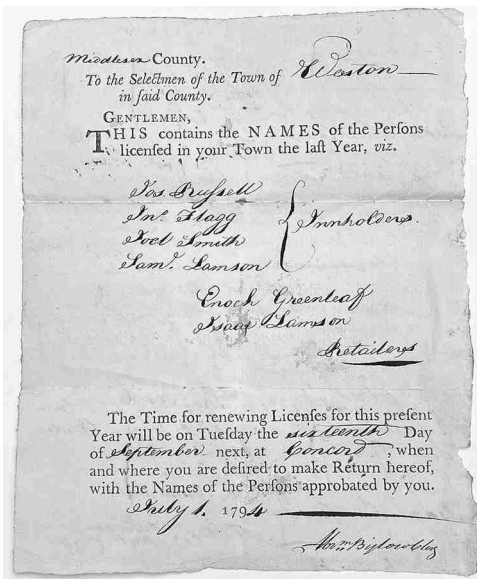 Middlesex County.
To the Selectmen of the Town of Weston
in ſaid County.
GENTLEMEN,
THIS contains the NAMES of the Perſons
licenſed in your Town the laſt Year, viz.
Jos. Russell
Jnº. Flagg
Joel Smith
Samˡ. Lamson
Innholders.
Enoch Greenleaf
Isaac Lamson
Retailers
The Time for renewing Licenſes for this preſent
Year will be on Tueſday the sixteenth Day
of September next, at Concord, when
and where you are deſired to make Return hereof,
with the Names of the Perſons approbated by you.
July 1. 1794
Abrᵐ Biglow Cler